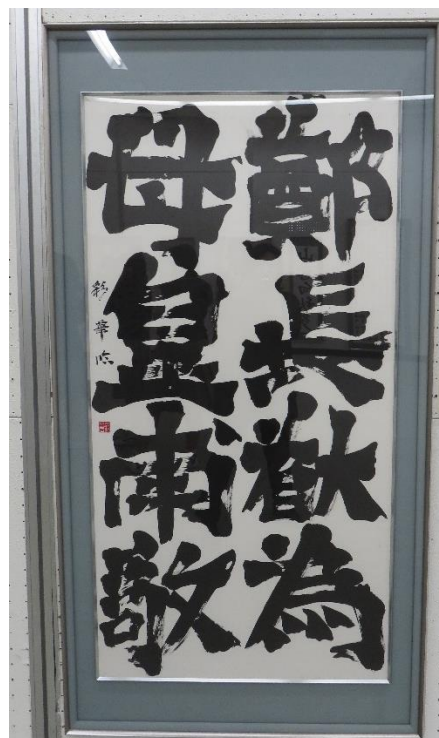 鄭長猷為
母皇甫敬
彩華臨